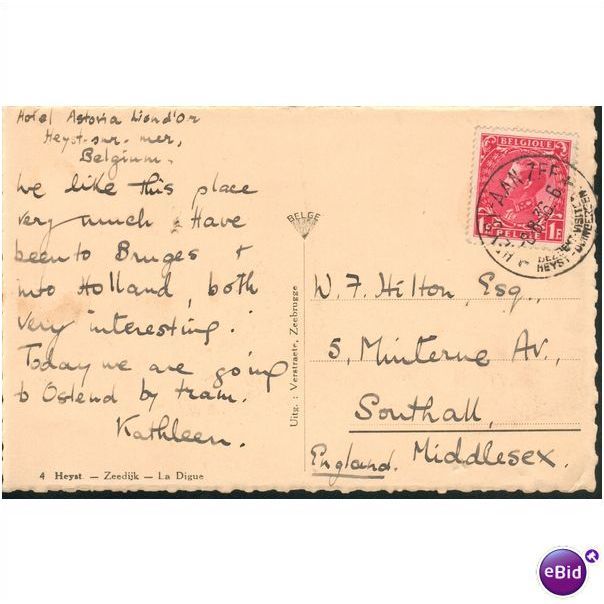 Hotel Astoria Liond'or
Heyst-sur-mer,
Belgium.
We like this place
very much. Have
been to Bruges +
into Holland, both
very interesting.
Today we are going
to Ostend by tram.
Kathleen.
4 Heyst. — Zeedijk — La Digue
BELGE
Uitg.: Verstraete, Zeebrugge
BELGIQUE
1F BELGIE 1F
AAN ZEE
HEYST
W. F. Hilton, Esq.,
5, Minterne Av.,
Southall,
Middlesex.
England.
eBid